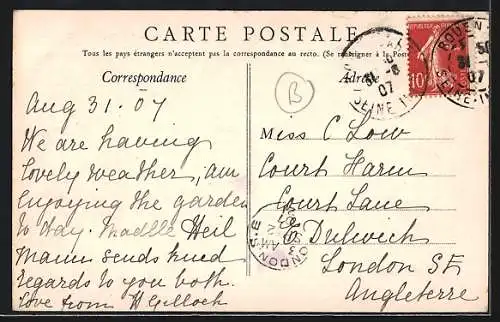 CARTE POSTALE
Tous les pays étrangers n'acceptent pas la correspondance au recto. (Se renseigner à la Poste)
Correspondance
Adresse
B
Aug 31. 07
We are having
lovely weather, am
enjoying the garden
to day. Madlle Heil
Mann sends kind
regards to you both.
Love from H Gilloch
Miss C Low
Court Harm
Court Lane
E Dulwich
London SE
Angleterre
10
ROUEN
31 -8
07
SEINE
LONDON S.E
AM